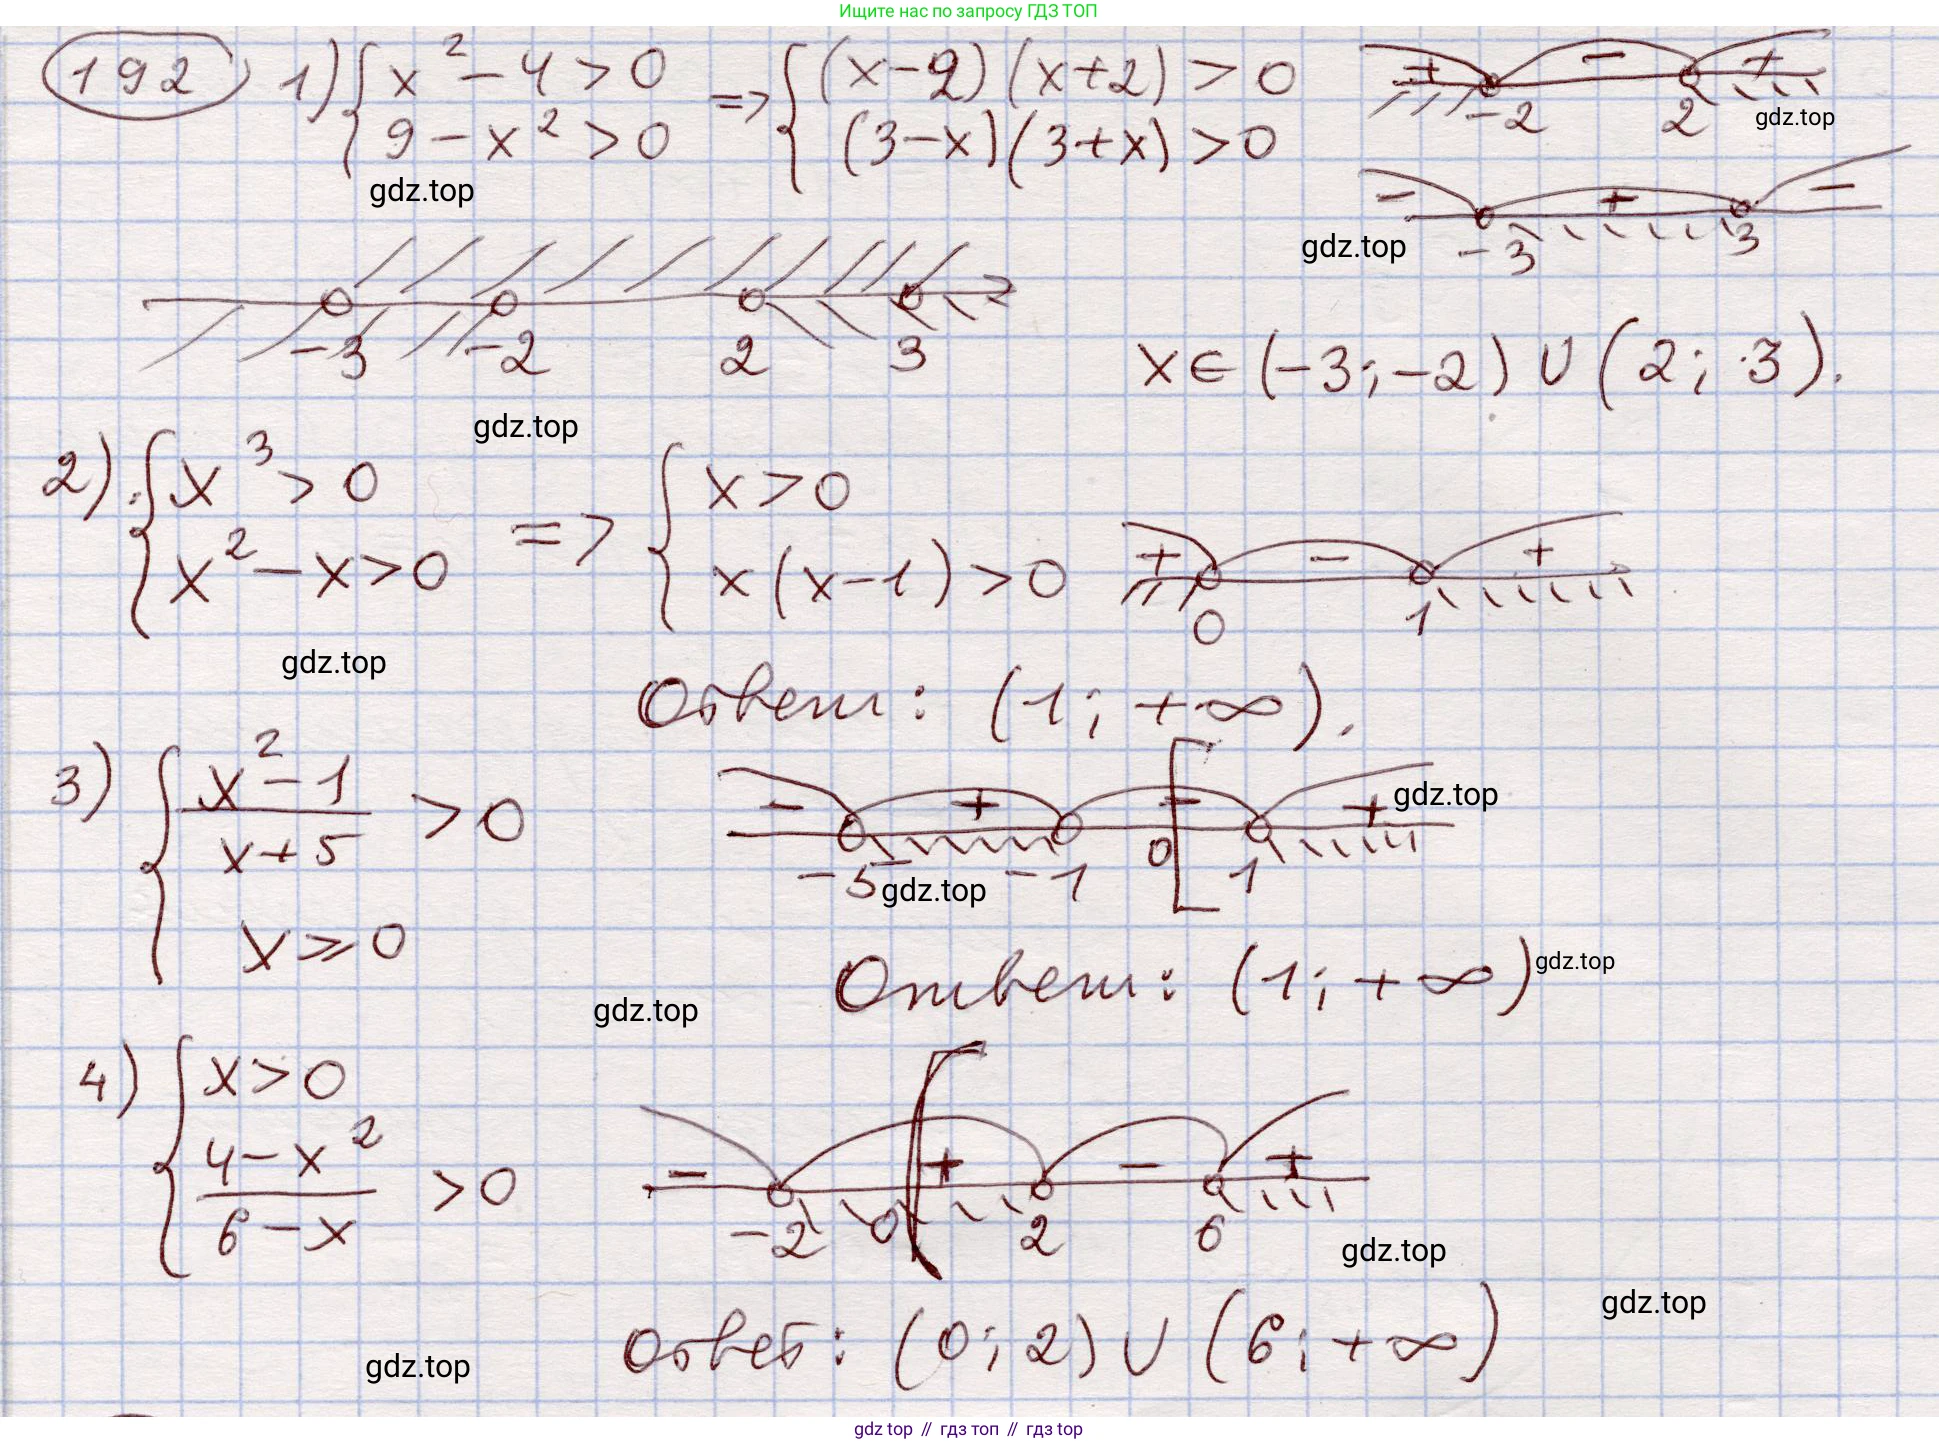 Ищите нас по запросу ГДЗ ТОП
192 1) { x² - 4 > 0 => { (x-2)(x+2) > 0 + - + -2 2 gdz.top
9 - x² > 0 (3-x)(3+x) > 0 - + - -3 3
gdz.top gdz.top
-3 -2 2 3 x ∈ (-3; -2) ∪ (2; 3).
gdz.top
2) { x³ > 0 => { x > 0
x² - x > 0 x(x-1) > 0 + - + 0 1
gdz.top
Ответ: (1; +∞).
3) { x² - 1 / x + 5 > 0 - + - + -5 -1 0 1 gdz.top
gdz.top
x ≥ 0
Ответ: (1; +∞) gdz.top
gdz.top
4) { x > 0
4 - x² / 6 - x > 0 - + - + -2 0 2 6
gdz.top
gdz.top
ответ: (0; 2) ∪ (6; +∞)
gdz.top
gdz.top // гдз топ // гдз top